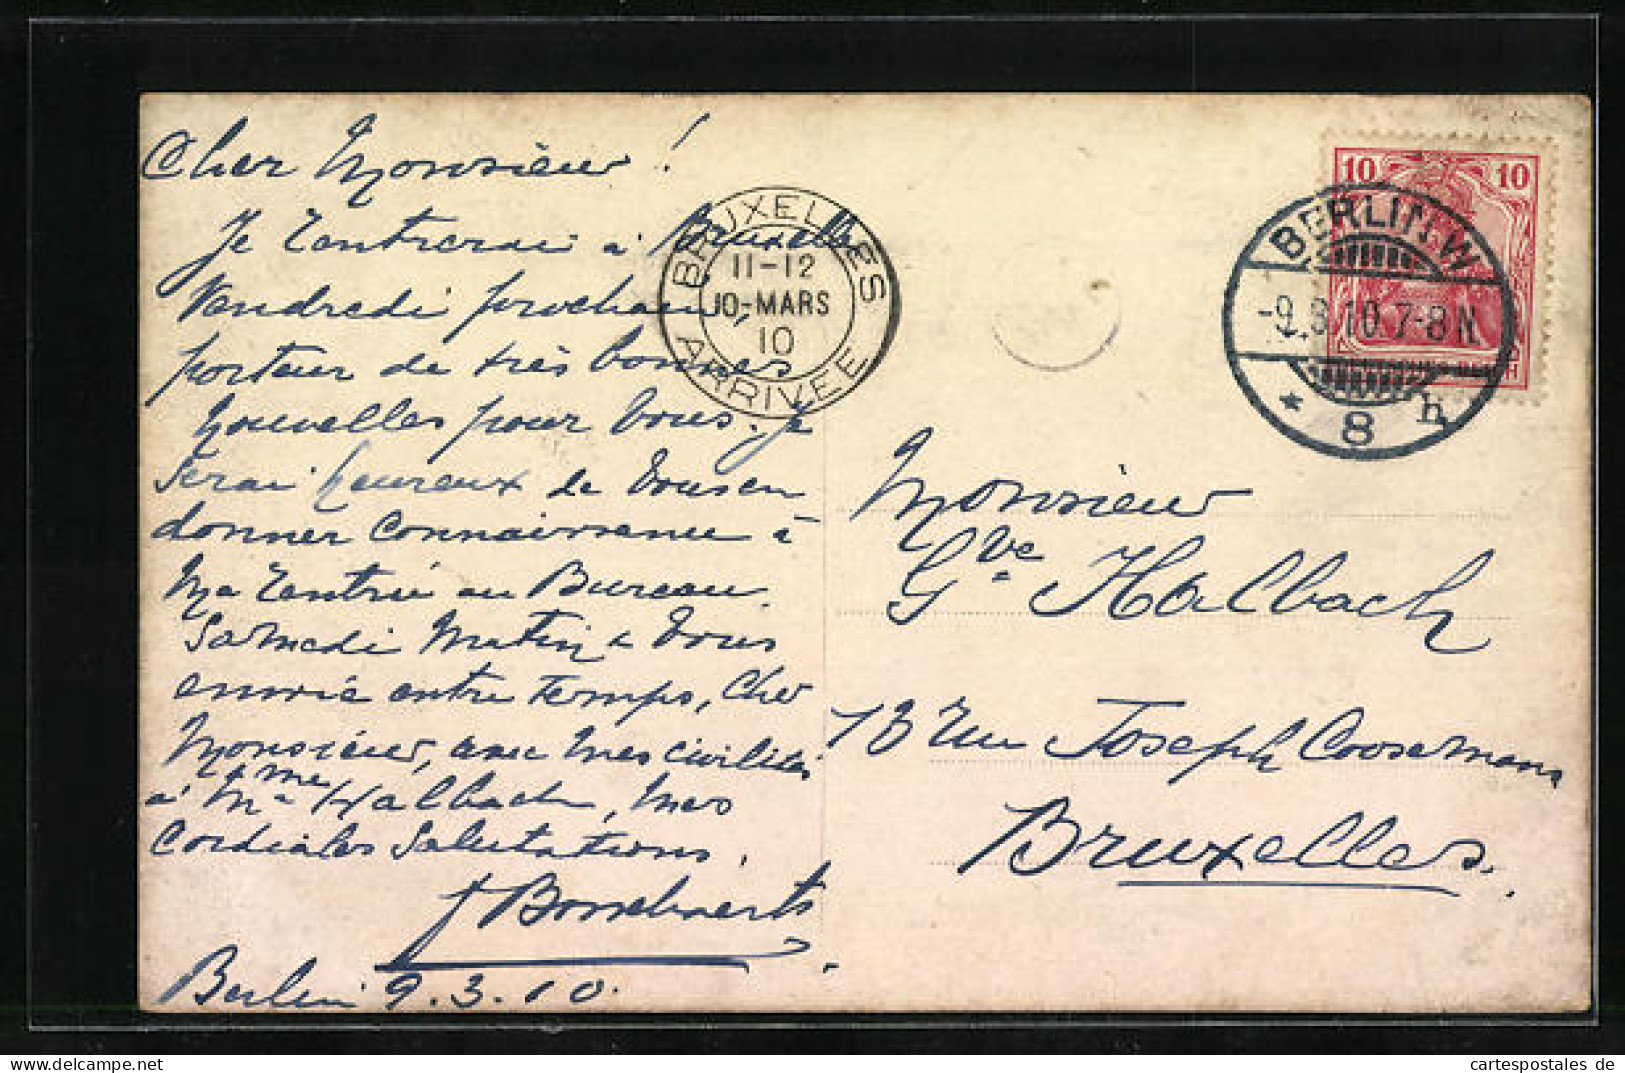 Cher Monsieur !
Je rentrerai à Bruxelles
Vendredi prochain,
porteur de très bonnes
nouvelles pour vous. Je
serai heureux de vous en
donner connaissance à
ma rentrée au Bureau
Samedi matin & vous
envoie entre temps, Cher
Monsieur, avec mes civilités
à Mme Halbach, mes
Cordiales Salutations.
Berlin 9.3.10.
BRUXELLES
11-12
10-MARS
10
ARRIVEE
10 10
BERLIN.W
-9.3.10.7-8N.
* 8 h
Monsieur
Gve Halbach
13 rue Joseph Coosemans
Bruxelles.
cartespostales de